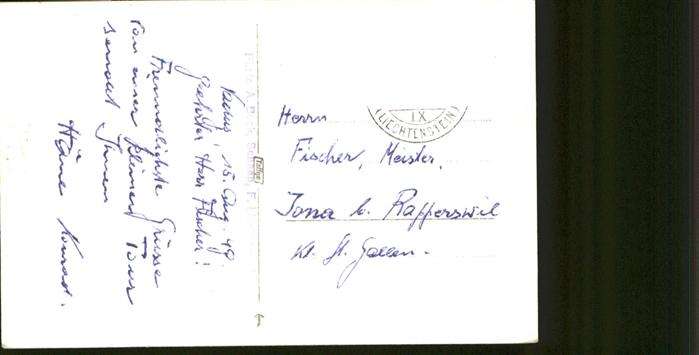 15. Aug. 49.
geehrter Herr Fischer!
Freundlichste Grüsse
von einer kleinen Tour
sendet Ihnen
Konrad.
Herrn
Fischer, Meister,
Jona b. Rapperswil
Kt. St. Gallen.
IX
LIECHTENSTEIN